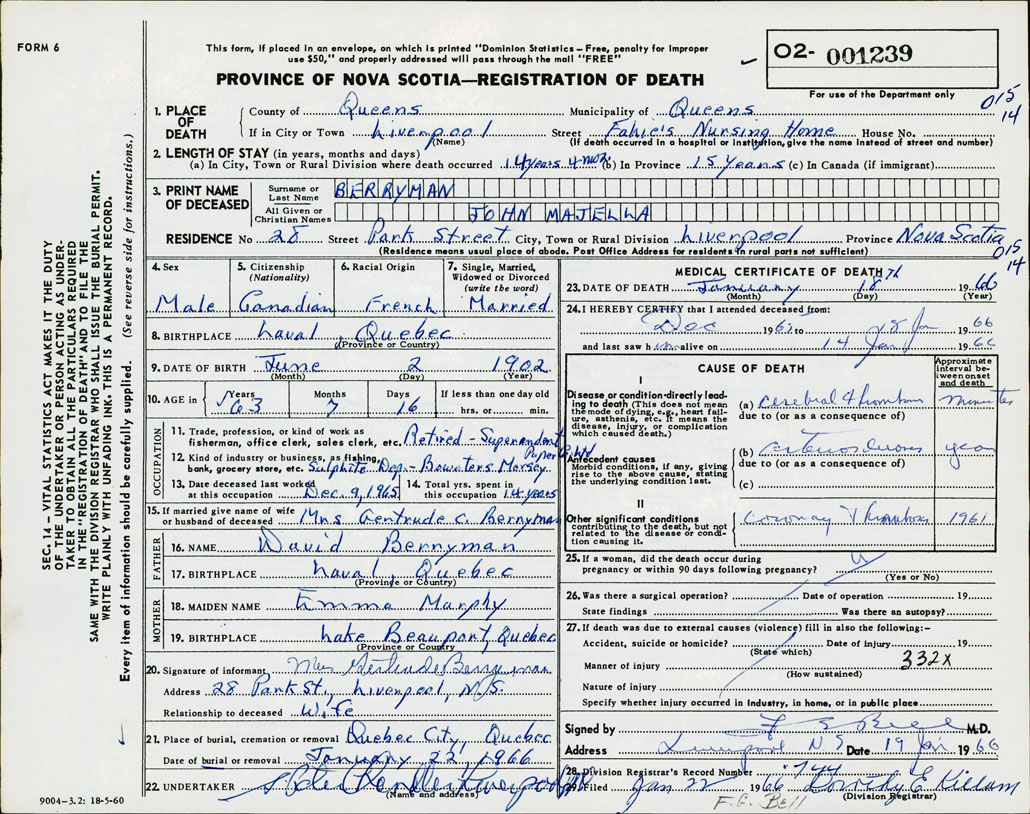 FORM 6
This form, if placed in an envelope, on which is printed "Dominion Statistics – Free, penalty for improper
use $50," and properly addressed will pass through the mail "FREE"
PROVINCE OF NOVA SCOTIA—REGISTRATION OF DEATH
O2- 001239
For use of the Department only
015
14
1. PLACE OF DEATH
County of Queens Municipality of Queens
If in City or Town Liverpool Street Fahie's Nursing Home House No.
(Name) (If death occurred in a hospital or institution, give the name instead of street and number)
2. LENGTH OF STAY (in years, months and days)
(a) In City, Town or Rural Division where death occurred 14 years 4 mos. (b) In Province 15 years (c) In Canada (if immigrant)
3. PRINT NAME OF DECEASED
Surname or Last Name BERRYMAN
All Given or Christian Names JOHN MAJELLA
RESIDENCE No 28 Street Park Street City, Town or Rural Division Liverpool Province Nova Scotia
(Residence means usual place of abode. Post Office Address for residents in rural parts not sufficient)
015
14
4. Sex
Male
5. Citizenship (Nationality)
Canadian
6. Racial Origin
French
7. Single, Married, Widowed or Divorced (write the word)
Married
8. BIRTHPLACE Laval, Quebec
(Province or Country)
9. DATE OF BIRTH June 2 1902
(Month) (Day) (Year)
10. AGE in Years 63 Months 7 Days 16 If less than one day old hrs. or min.
OCCUPATION
11. Trade, profession, or kind of work as
fisherman, office clerk, sales clerk, etc. Retired - Superandent
12. Kind of industry or business, as fishing,
bank, grocery store, etc. Sulphite Dep - Bowaters Mersey Paper
13. Date deceased last worked
at this occupation Dec. 9, 1965
14. Total yrs. spent in
this occupation 14 years
15. If married give name of wife
or husband of deceased Mrs Gertrude C. Berryman
FATHER
16. NAME David Berryman
17. BIRTHPLACE Laval, Quebec
(Province or Country)
MOTHER
18. MAIDEN NAME Emma Murphy
19. BIRTHPLACE Lake Beauport, Quebec
(Province or Country)
20. Signature of informant Mrs Gertrude Berryman
Address 28 Park St., Liverpool, N.S.
Relationship to deceased Wife
21. Place of burial, cremation or removal Quebec City, Quebec
Date of burial or removal January 22, 1966
22. UNDERTAKER
(Name and address)
9004–3.2: 18-5-60
MEDICAL CERTIFICATE OF DEATH
23. DATE OF DEATH January 18th 1966
(Month) (Day) (Year)
24. I HEREBY CERTIFY that I attended deceased from:
Dec 1961 to 18 Jan 1966
and last saw him alive on 14 Jan 1966
CAUSE OF DEATH
Approximate interval between onset and death
I
Disease or condition-directly leading to death (This does not mean the mode of dying, e.g., heart failure, asthenia, etc. It means the disease, injury, or complication which caused death.)
(a) Cerebral Thrombosis minutes
due to (or as a consequence of)
Antecedent causes
Morbid conditions, if any, giving rise to the above cause, stating the underlying condition last.
(b) years
due to (or as a consequence of)
(c)
II
Other significant conditions contributing to the death, but not related to the disease or condition causing it.
Coronary Thrombosis 1961
25. If a woman, did the death occur during
pregnancy or within 90 days following pregnancy?
(Yes or No)
26. Was there a surgical operation? Date of operation 19
State findings Was there an autopsy?
27. If death was due to external causes (violence) fill in also the following:–
Accident, suicide or homicide? Date of injury 19
(State which)
332X
Manner of injury
(How sustained)
Nature of injury
Specify whether injury occurred in industry, in home, or in public place
Signed by F G Bell M.D.
Address Liverpool N S Date 19 Jan 1966
28. Division Registrar's Record Number 744
29. Filed Jan 1966 Dorothy E Killam
(Division Registrar)
F.G. Bell
SEC. 14 – VITAL STATISTICS ACT MAKES IT THE DUTY
OF THE UNDERTAKER OR PERSON ACTING AS UNDER-
TAKER TO OBTAIN ALL THE PARTICULARS REQUIRED
IN THE "REGISTRATION OF DEATH" AND TO FILE THE
SAME WITH THE DIVISION REGISTRAR WHO SHALL ISSUE THE BURIAL PERMIT.
WRITE PLAINLY WITH UNFADING INK. THIS IS A PERMANENT RECORD.
Every item of information should be carefully supplied. (See reverse side for instructions.)